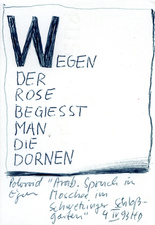 WEGEN
DER
ROSE
BEGIESST
MAN
DIE
DORNEN
"Arab. Spruch in
Moschee im
Schwetzinger Schloß-
garten"